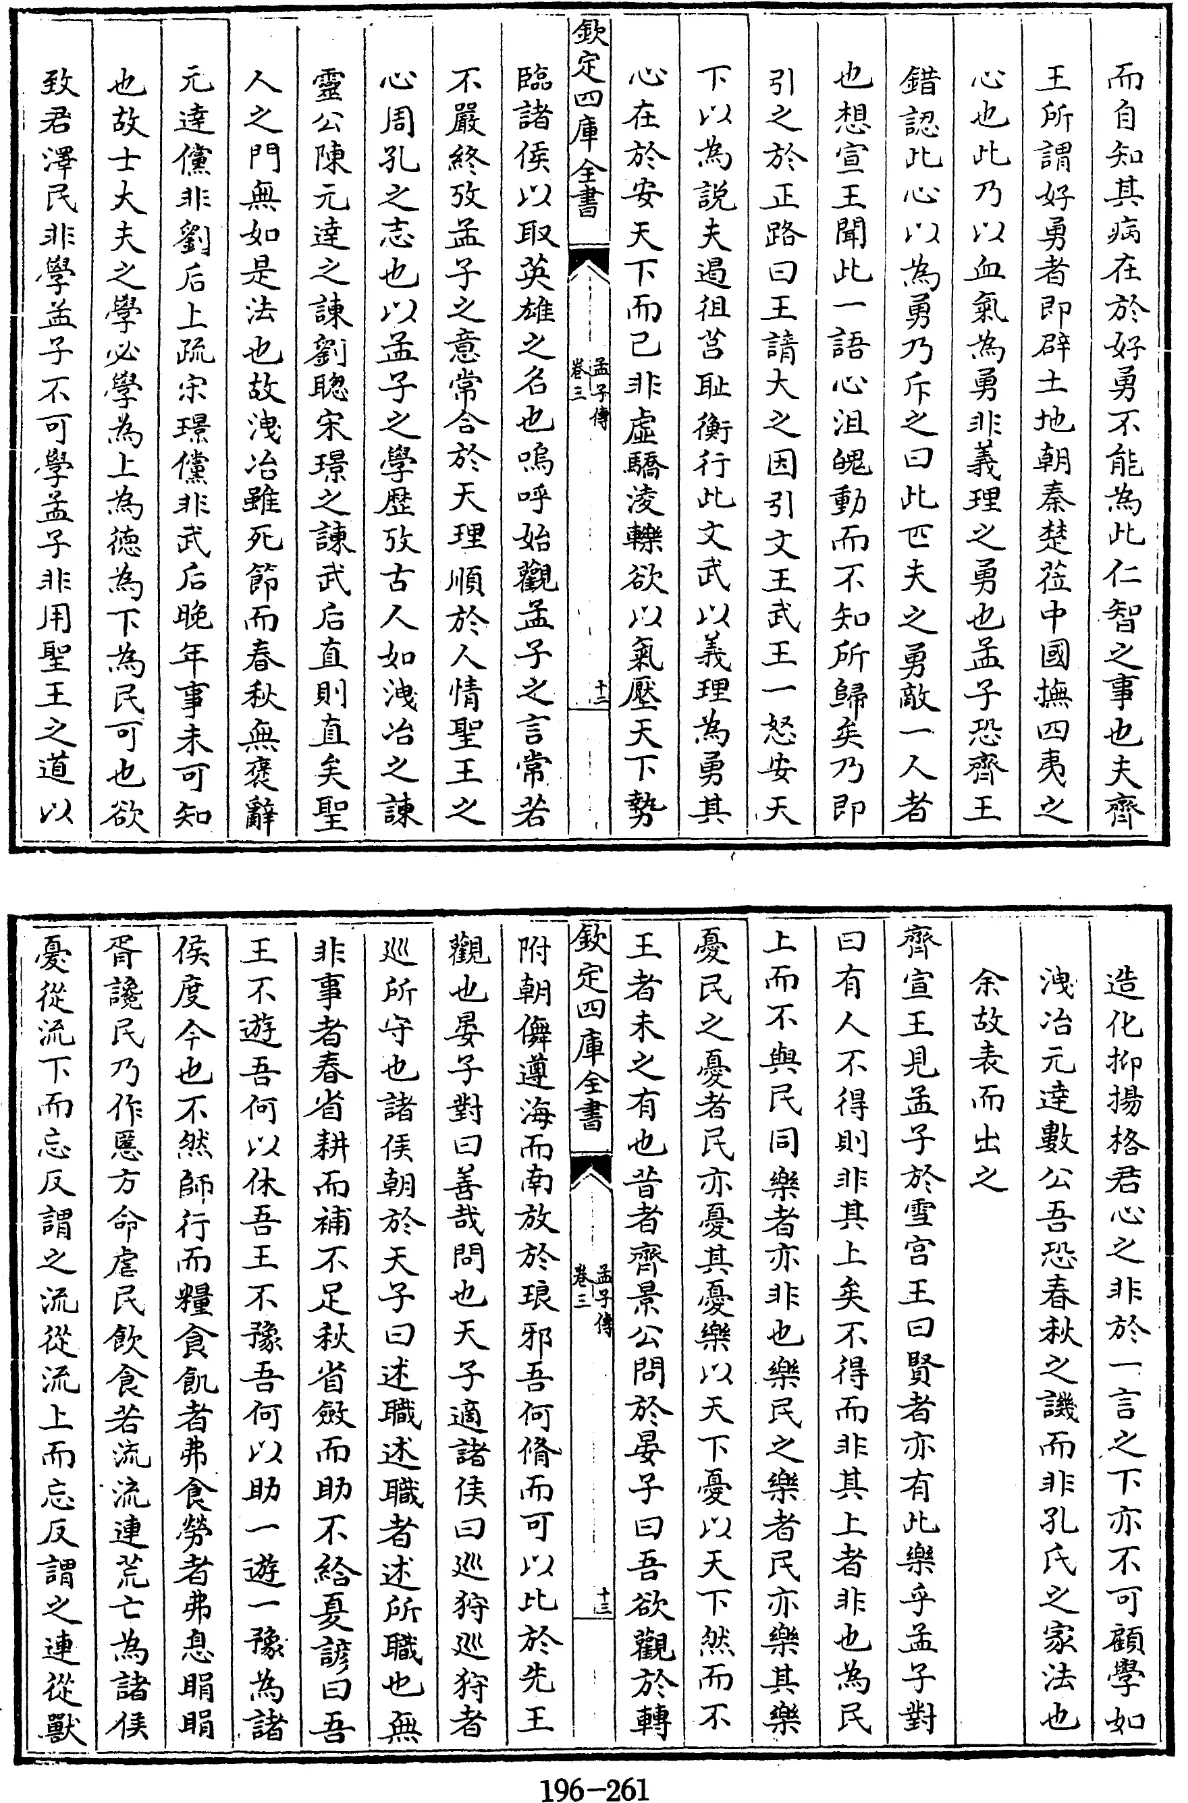 而自知其病在於好勇不能為此仁智之事也夫齊
王所謂好勇者即辟土地朝秦楚莅中國撫四夷之
心也此乃以血氣為勇非義理之勇也孟子恐齊王
錯認此心以為勇乃斥之曰此匹夫之勇敵一人者
也想宣王聞此一語心沮魄動而不知所歸矣乃即
引之於正路曰王請大之因引文王武王一怒安天
下以為説夫遏徂莒耻衡行此文武以義理為勇其
心在於安天下而已非虛驕淩轢欲以氣壓天下勢
欽定四庫全書
孟子傳
卷三
十二
臨諸侯以取英雄之名也嗚呼始觀孟子之言常若
不嚴終攷孟子之意常合於天理順於人情聖王之
心周孔之志也以孟子之學歷攷古人如洩冶之諫
靈公陳元達之諫劉聰宋璟之諫武后直則直矣聖
人之門無如是法也故洩冶雖死節而春秋無褒辭
元達儻非劉后上疏宋璟儻非武后晚年事未可知
也故士大夫之學必學為上為德為下為民可也欲
致君澤民非學孟子不可學孟子非用聖王之道以
造化抑揚格君心之非於一言之下亦不可顧學如
洩冶元達數公吾恐春秋之譏而非孔氏之家法也
余故表而出之
齊宣王見孟子於雪宮王曰賢者亦有此樂乎孟子對
曰有人不得則非其上矣不得而非其上者非也為民
上而不與民同樂者亦非也樂民之樂者民亦樂其樂
憂民之憂者民亦憂其憂樂以天下憂以天下然而不
王者未之有也昔者齊景公問於晏子曰吾欲觀於轉
欽定四庫全書
孟子傳
卷三
十三
附朝儛遵海而南放於琅邪吾何脩而可以比於先王
觀也晏子對曰善哉問也天子適諸侯曰巡狩巡狩者
巡所守也諸侯朝於天子曰述職述職者述所職也無
非事者春省耕而補不足秋省斂而助不給夏諺曰吾
王不遊吾何以休吾王不豫吾何以助一遊一豫為諸
侯度今也不然師行而糧食飢者弗食勞者弗息睊睊
胥讒民乃作慝方命虐民飲食若流流連荒亡為諸侯
憂從流下而忘反謂之流從流上而忘反謂之連從獸
196-261